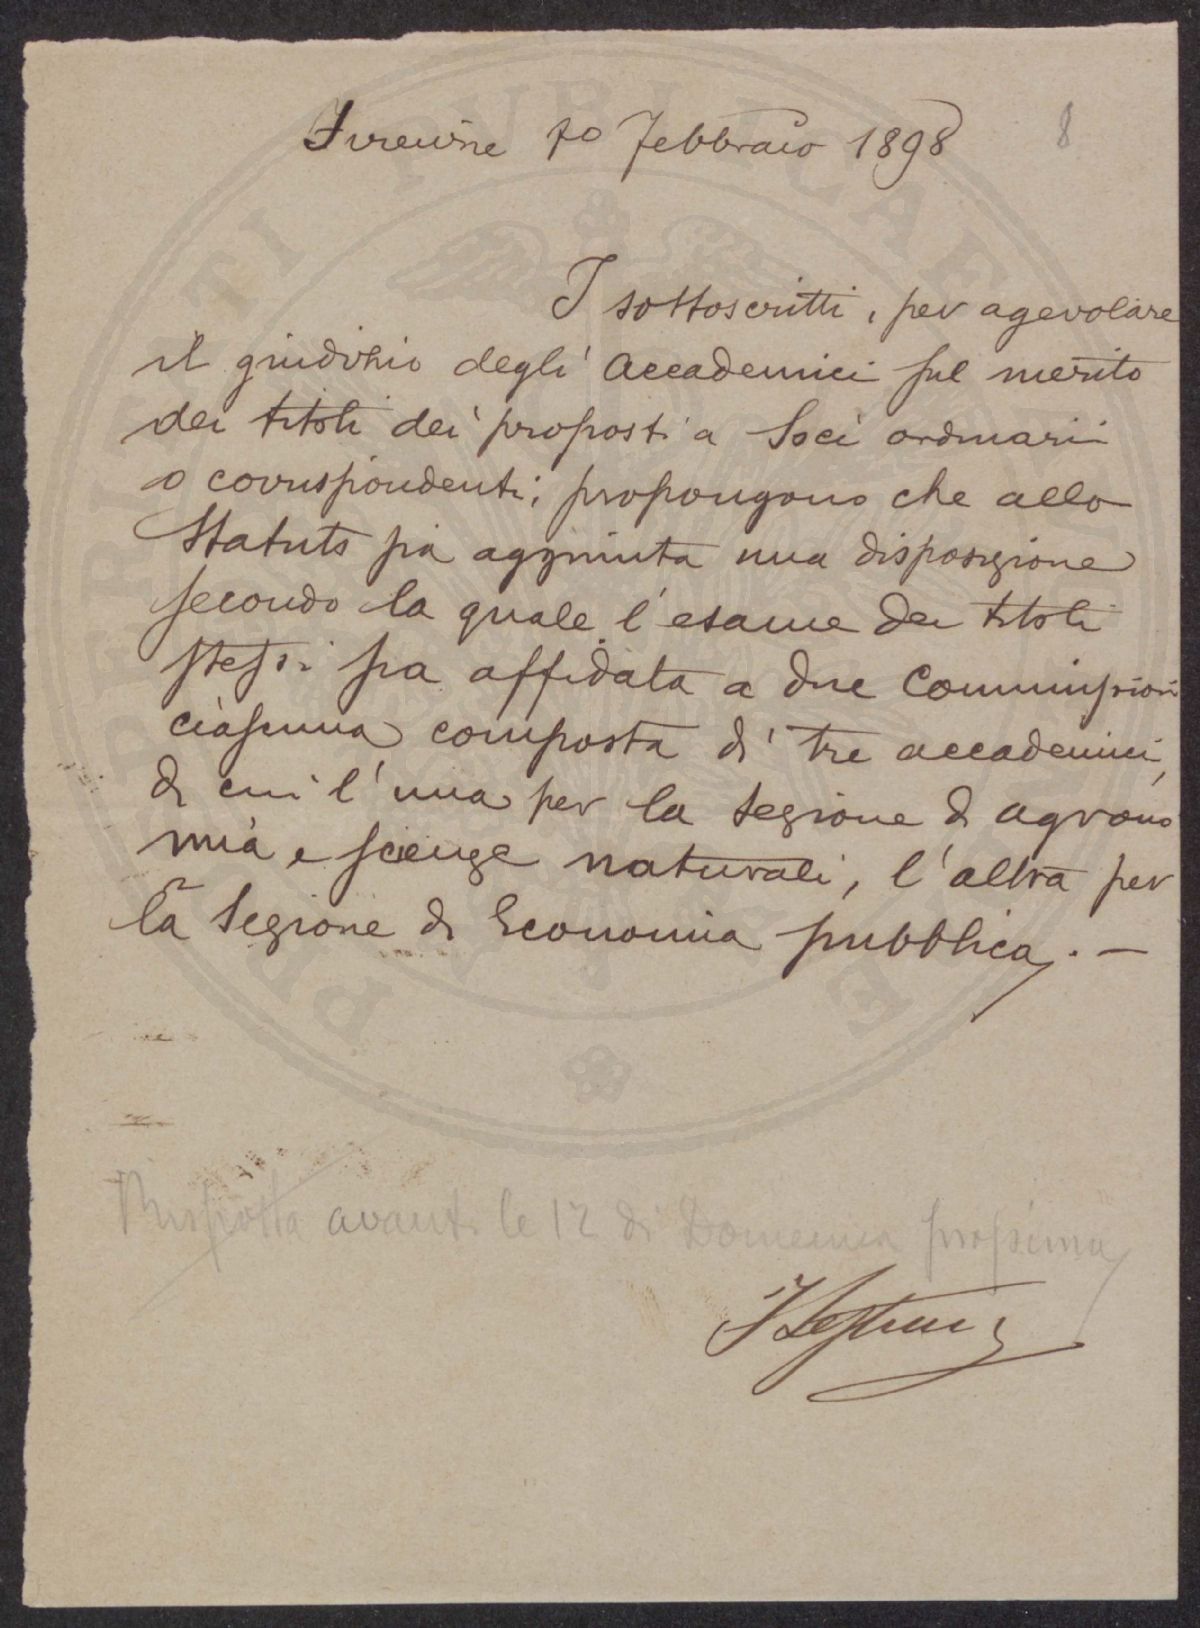 Firenze 10 Febbraio 1898
8
I sottoscritti, per agevolare
il giudizio degli Accademici sul merito
dei titoli dei proposti a Soci ordinarii
o corrispondenti, propongono che allo
Statuto sia aggiunta una disposizione
secondo la quale l'esame dei titoli
stessi sia affidata a due Commissioni
ciascuna composta di tre accademici,
di cui l'una per la Sezione di agrono
mia e scienze naturali, l'altra per
la Sezione di Economia pubblica. —
Risposta avanti le 12 di Domenica prossima